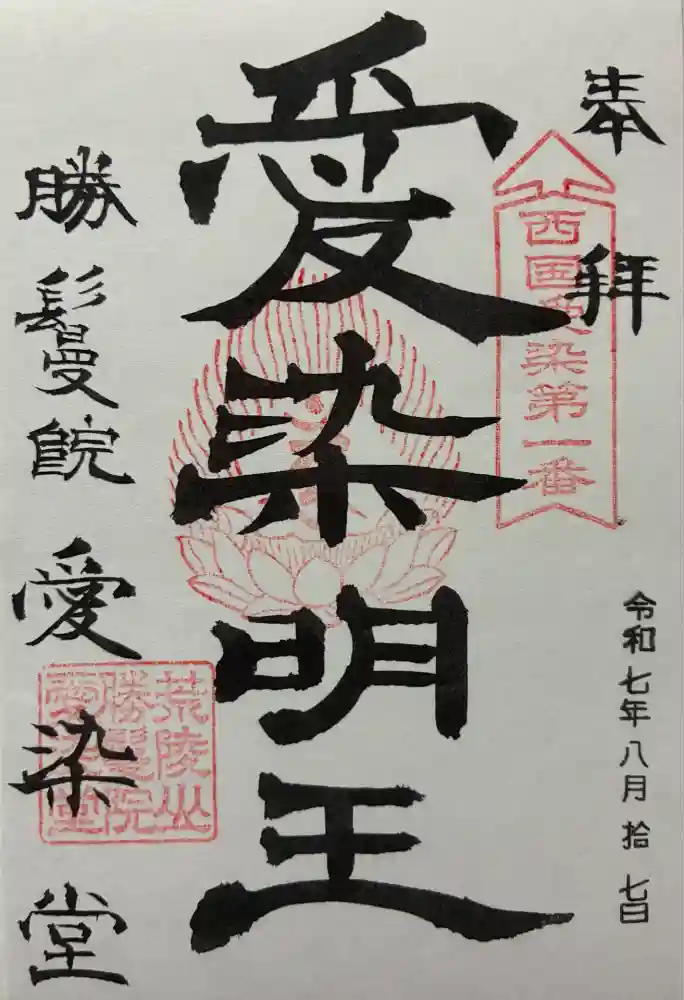 奉拝
西国愛染第一番
令和七年八月拾七日
愛染明王
荒陵山
勝鬘院
愛染堂
勝鬘院愛染堂